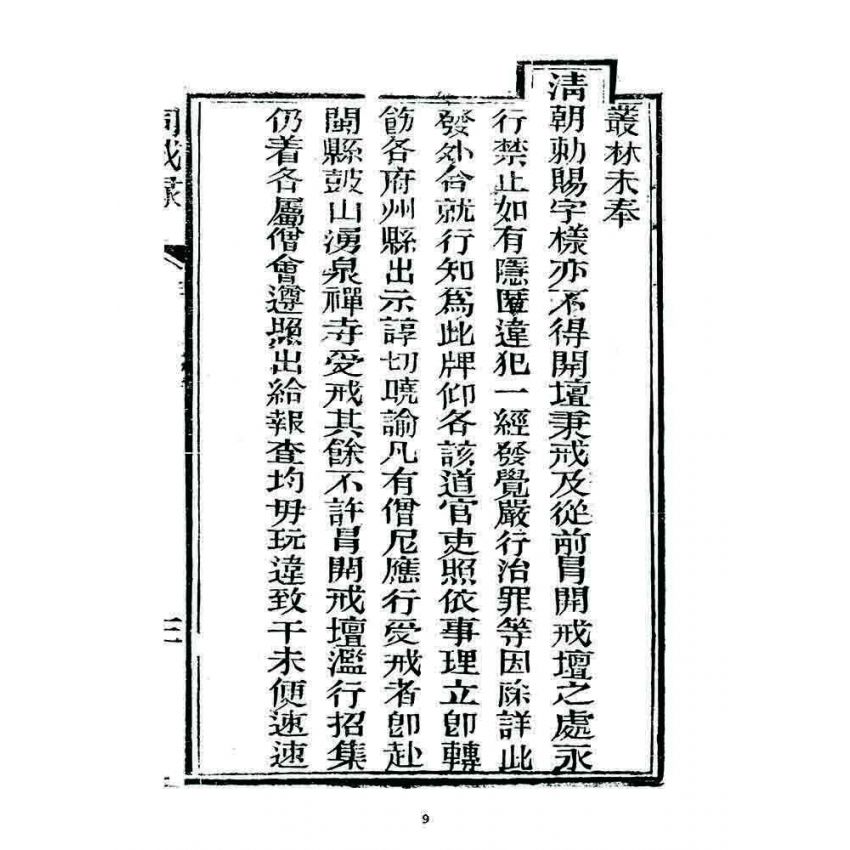 叢林未奉
清朝勅賜字樣亦不得開壇秉戒及從前冐開戒壇之處永
行禁止如有隱匿違犯一經發覺嚴行治罪等因除詳此
發外合就行知爲此牌仰各該道官吏照依事理立卽轉
飭各府州縣出示諄切曉諭凡有僧尼應行受戒者卽赴
閩縣鼓山湧泉禪寺受戒其餘不許冐開戒壇濫行招集
仍着各屬僧會遵照出給報查均毋玩違致干未便速速
同戒錄
三
9